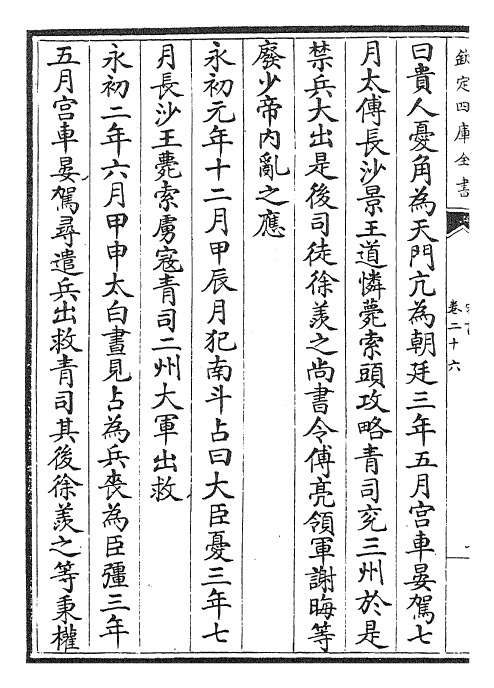 欽定四庫全書
卷二十六
曰貴人憂角為天門亢為朝廷三年五月宫車晏駕七
月太傅長沙景王道憐薨索頭攻略青司兖三州於是
禁兵大出是後司徒徐羨之尚書令傅亮領軍謝晦等
廢少帝内亂之應
永初元年十二月甲辰月犯南斗占曰大臣憂三年七
月長沙王薨索虜寇青司二州大軍出救
永初二年六月甲申太白晝見占為兵喪為臣彊三年
五月宫車晏駕尋遣兵出救青司其後徐羨之等秉權